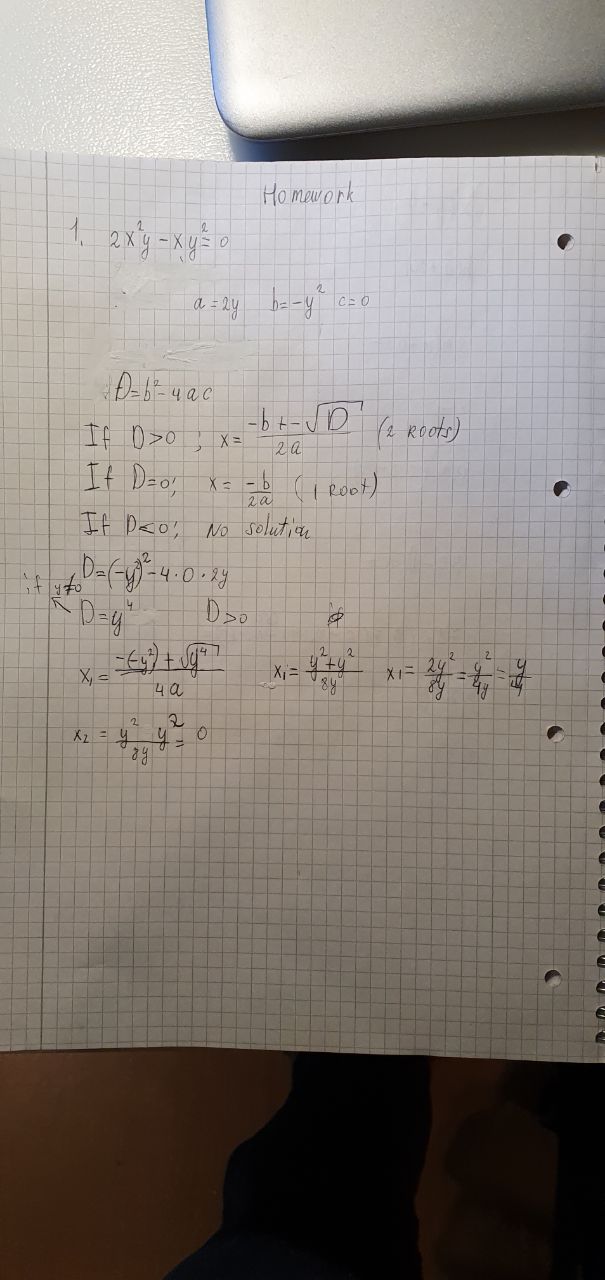 Homework
1. 2x²y - xy² = 0
a = 2y b = -y² c = 0
D = b² - 4ac
If D > 0; x = (-b + - √D) / 2a (2 roots)
If D = 0; x = -b / 2a (1 root)
If D < 0; no solution
D = (-y²)² - 4 · 0 · 2y
if y ≠ 0
D = y⁴ D > 0
x₁ = (-(-y²) + √y⁴) / 4a x₁ = (y² + y²) / 8y x₁ = 2y² / 8y = y² / 4y = y / 4
x₂ = y² y² / 8y = 0